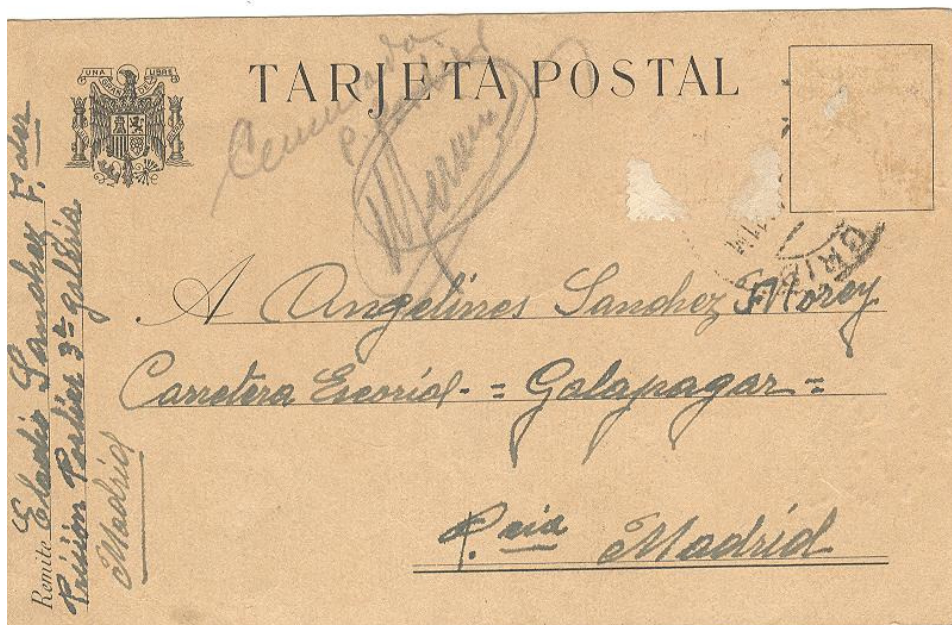 UNA GRANDE LIBRE
TARJETA POSTAL
Censurada
A Angelines Sanchez Florez
Carretera Escorial - = Galapagar =
P.cia Madrid
Remite Eladio Sanchez F.
Prisión Porlier 3ª galeria
Madrid